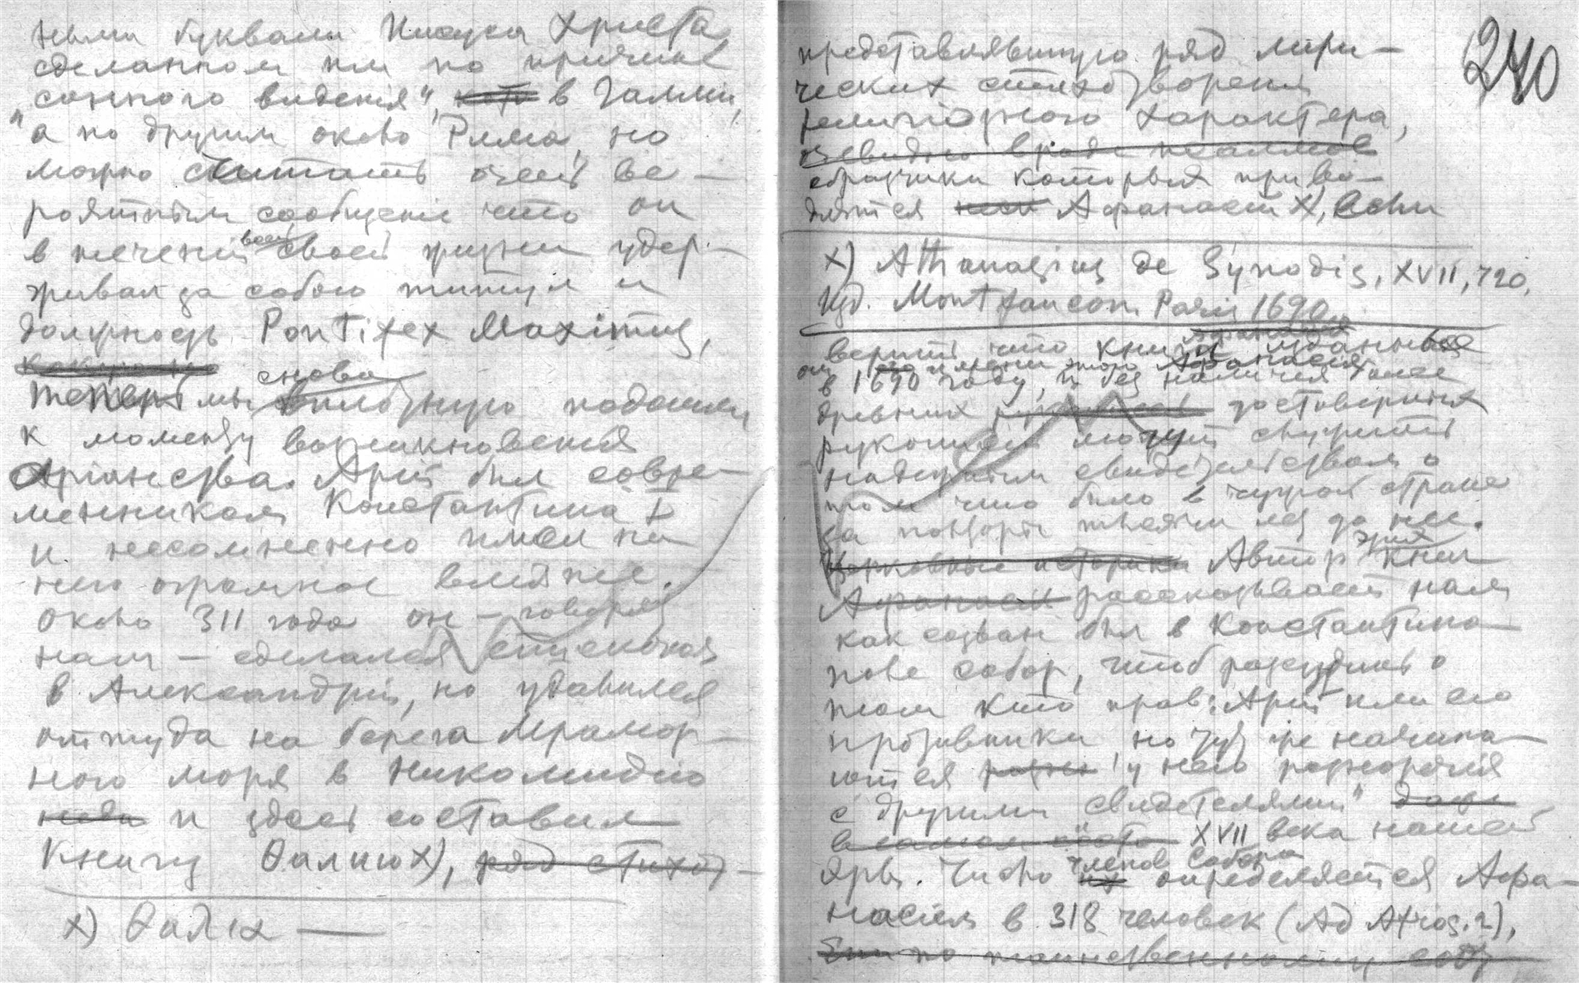 ными буквами Иисуса Христа,
сделанном им по причине
„сонного видения“, в Галлии,
"а по другим около Рима, но
можно считать очень ве-
роятным сообщение что он
в течении всей своей жизни удер-
живал за собою титул и
должность Pontifex Maximus,
Теперь мы снова вплотную подошли
к моменту возникновения
Арианства. Арий был совре-
менником Константина I
и несомненно имел на
него огромное влияние.
Около 311 года он — говорят
нам — сделался епископом
в Александрии, но удалился
оттуда на берега Мрамор-
ного моря в Никомидию
и здесь составил
Книгу Θалию x), ряд стихот-
x) Θαλια —
240
представлявшую ряд лири-
ческих стихотворений
религиозного характера,
очевидно вроде псалмов
образчики которых приво-
дятся Афанасием x). Если
x) Athanasius de Synodis, XVII, 720,
Изд. Montfaucon Paris 1690.
верить что книги изданные
от имени этого Афанасия
в 1690 году, и без наличия более
древних достоверных
рукописей могут служить
надежным свидетельством о
том что было в чужой стране
за полторы тысячи лет до нее.
Церковные историки Автор этих книг
Афанасий рассказывает нам
как созван был в Константино-
поле собор, чтоб рассудить о
том кто прав: Арий или его
противники, но тут же начина-
ются у него разноречия
с другими „свидетелями“
XVII века нашей
эры. Число членов Собора определяется Афа-
насием в 318 человек (Ad Afros. 2),
по таинственному